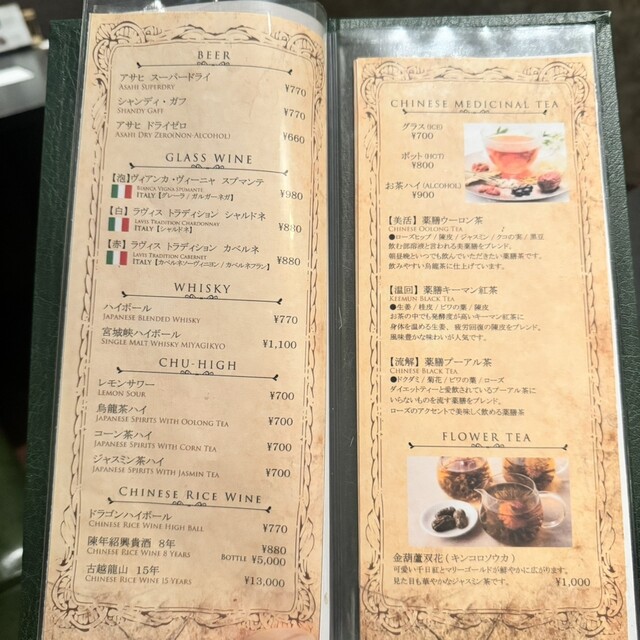 BEER
アサヒ スーパードライ
ASAHI SUPERDRY ¥770
シャンディ・ガフ
SHANDY GAFF ¥770
アサヒ ドライゼロ
ASAHI DRY ZERO(NON-ALCOHOL) ¥660
GLASS WINE
【泡】ヴィアンカ・ヴィーニャ スプマンテ
BIANCA VIGNA SPUMANTE ¥980
ITALY【グレーラ / ガルガーネガ】
【白】ラヴィス トラディション シャルドネ
LAVIS TRADITION CHARDONNAY ¥880
ITALY【シャルドネ】
【赤】ラヴィス トラディション カベルネ
LAVIS TRADITION CABERNET ¥880
ITALY【カベルネソーヴィニヨン / カベルネフラン】
WHISKY
ハイボール
JAPANESE BLENDED WHISKY ¥770
宮城峡ハイボール
SINGLE MALT WHISKY MIYAGIKYO ¥1,100
CHU-HIGH
レモンサワー
LEMON SOUR ¥700
烏龍茶ハイ
JAPANESE SPIRITS WITH OOLONG TEA ¥700
コーン茶ハイ
JAPANESE SPIRITS WITH CORN TEA ¥700
ジャスミン茶ハイ
JAPANESE SPIRITS WITH JASMIN TEA ¥700
CHINESE RICE WINE
ドラゴンハイボール
CHINESE RICE WINE HIGH BALL ¥770
陳年紹興貴酒 8年 ¥880
CHINESE RICE WINE 8 YEARS BOTTLE ¥5,000
古越龍山 15年
CHINESE RICE WINE 15 YEARS ¥13,000
CHINESE MEDICINAL TEA
グラス(ICE)
¥700
ポット(HOT)
¥800
お茶ハイ(ALCOHOL)
¥900
【美活】薬膳ウーロン茶
CHINESE OOLONG TEA
●ローズヒップ / 陳皮 / ジャスミン / クコの実 / 黒豆
飲む部溶液と言われる美薬膳をブレンド。
朝昼晩といつでも飲んでいただきたい薬膳茶です。
飲みやすい烏龍茶に仕上げています。
【温回】薬膳キーマン紅茶
KEEMUN BLACK TEA
●生姜 / 桂皮 / ビワの葉 / 陳皮
お茶の中でも発酵度が高いキーマン紅茶に
身体を温める生姜、疲労回復の陳皮をブレンド。
風味豊かな味わいが人気です。
【流解】薬膳プーアル茶
CHINESE BLACK TEA
●ドクダミ / 菊花 / ビワの葉 / ローズ
ダイエットティーと愛飲されているプーアル茶に
いらないものを流す薬膳をブレンド。
ローズのアクセントで美味しく飲める薬膳茶
FLOWER TEA
金葫蘆双花 ( キンコロソウカ )
可愛い千日紅とマリーゴールドが鮮やかに広がります。
見た目も華やかなジャスミン茶です。 ¥1,000